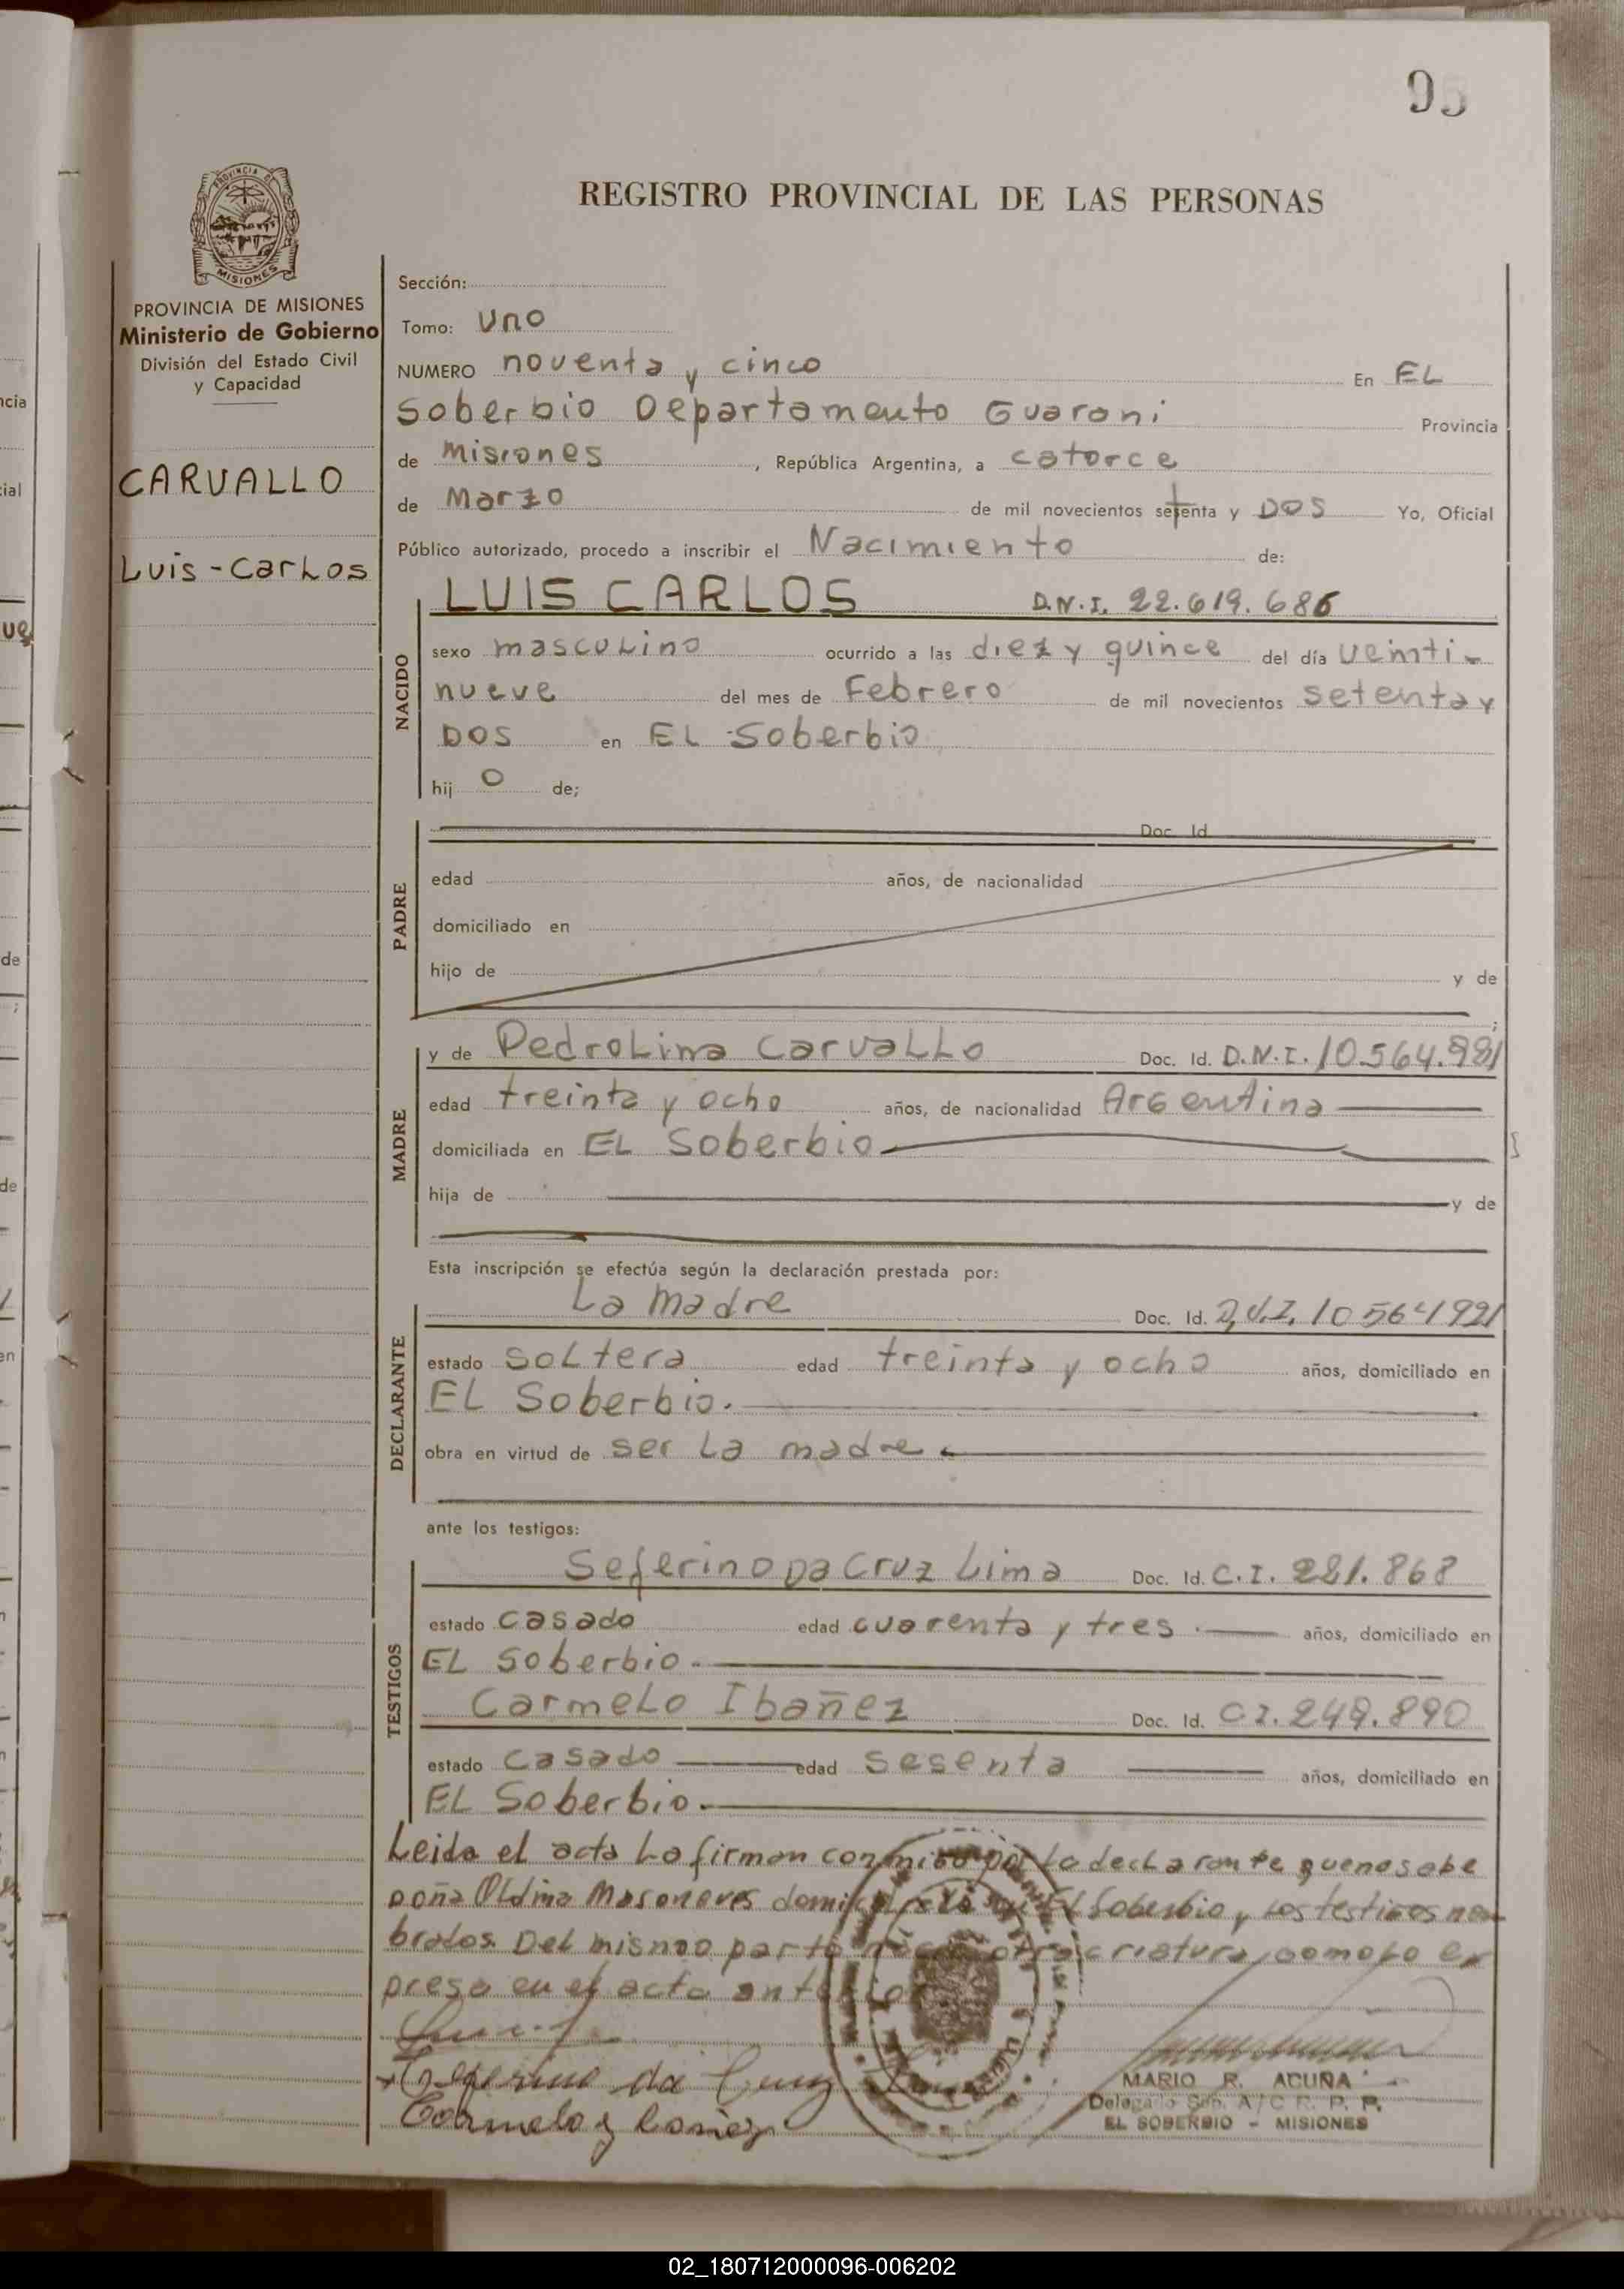 95
REGISTRO PROVINCIAL DE LAS PERSONAS
PROVINCIA DE MISIONES
PROVINCIA DE MISIONES
Ministerio de Gobierno
División del Estado Civil
y Capacidad
CARVALLO
Luis - Carlos
Sección:
Tomo: Uno
NUMERO noventa y cinco En EL
Soberbio Departamento Guarani Provincia
de Misiones, República Argentina, a catorce
de Marzo de mil novecientos setenta y DOS Yo, Oficial
Público autorizado, procedo a inscribir el Nacimiento de:
LUIS CARLOS D.N.I. 22.619.686
NACIDO
sexo mascolino ocurrido a las diez y quince del día veinti-
nueve del mes de Febrero de mil novecientos setenta y
DOS en EL Soberbio
hijo de;
PADRE
Doc. Id.
edad años, de nacionalidad
domiciliado en
hijo de y de
;
MADRE
y de Pedrolina Carvallo Doc. Id. D.N.I. 10.564.991
edad treinta y ocho años, de nacionalidad Argentina
domiciliada en EL Soberbio
hija de y de
Esta inscripción se efectúa según la declaración prestada por:
DECLARANTE
La Madre Doc. Id. D.N.I. 10564991
estado soltera edad treinta y ocho años, domiciliado en
EL Soberbio.
obra en virtud de ser La madre
ante los testigos:
TESTIGOS
Seferino Da Cruz Lima Doc. Id. C.I. 221.868
estado casado edad cuarenta y tres. años, domiciliado en
EL Soberbio.
Carmelo Ibañez Doc. Id. C.I. 249.890
estado casado edad sesenta años, domiciliado en
EL Soberbio.
Leida el acta La firman conmigo por la declarante que no sabe
Doña Oldina en El Soberbio y Los testigos nom
brados. Del mismo parto otra criatura, como lo ex
presa en el acta anterior
Seferino da Cruz Lima
Carmelo Ibañez
MARIO R. ACUÑA
Delegado Sup. A/C R. P. P.
EL SOBERBIO - MISIONES
02_180712000096-006202